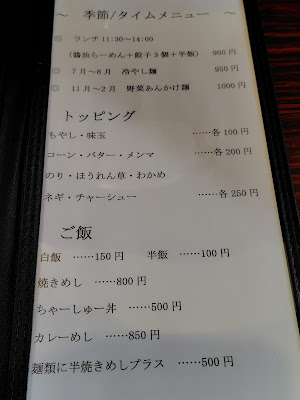 ～ 季節/タイムメニュー ～
◎ ランチ 11:30～14:00
(醤油らーめん＋餃子３個＋半飯) 900円
◎ 7月～8月 冷やし麺 950円
◎ 11月～2月 野菜あんかけ麺 1000円
トッピング
もやし・味玉 ……各100円
コーン・バター・メンマ ……各200円
のり・ほうれん草・わかめ
ネギ・チャーシュー ……各250円
ご飯
白飯 ……150円 半飯 ……100円
焼きめし ……800円
ちゃーしゅー丼 ……500円
カレーめし ……850円
麺類に半焼きめしプラス ……500円